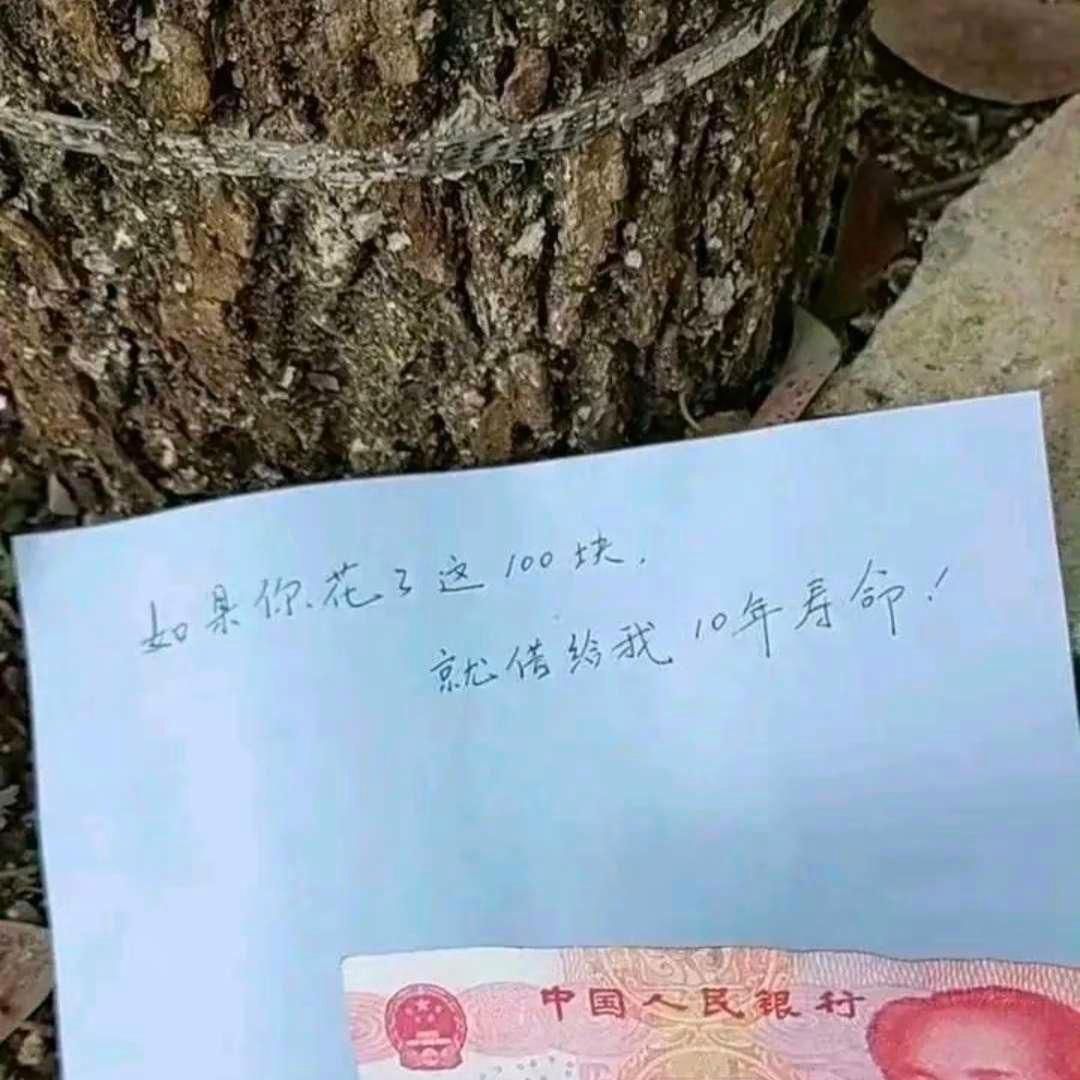 如果你花了这100块,
就借给我10年寿命!
中国人民银行